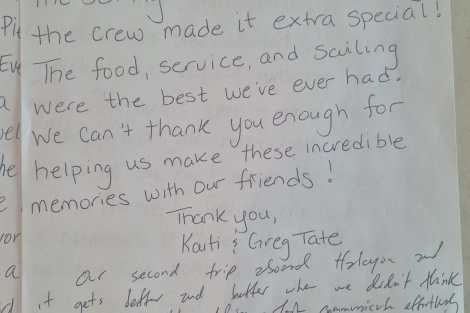 Pi the crew made it extra special!
Eve The food, service, and Sailing
a were the best we've ever had.
vel We Can't thank you enough for
he helping us make these incredible
e memories with our friends!
Thank you,
Kaiti & Greg Tate
a our second trip aboard Halcyon and
it gets better and better when we didn't think
communicate effortlessly